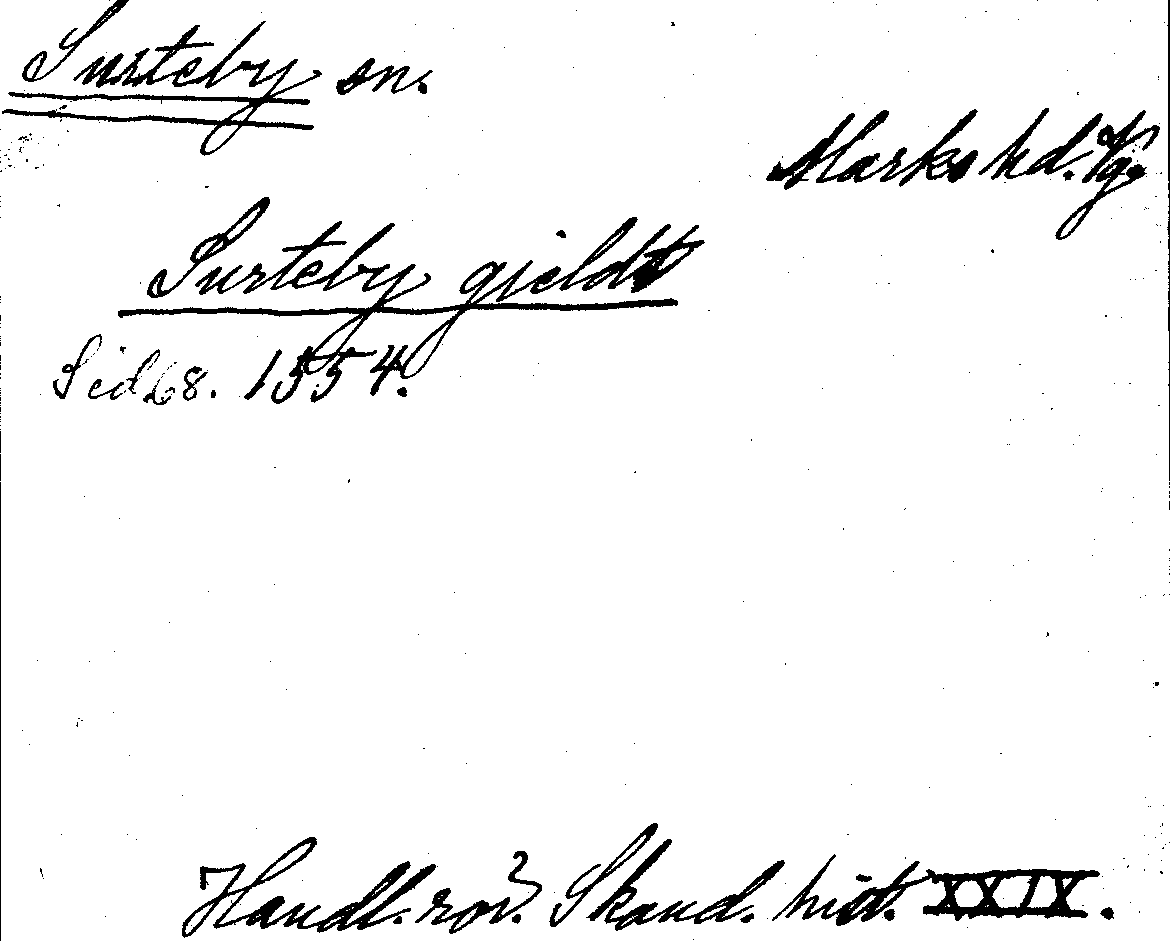 Surteby sn.
Marks hd. Vg.
Surteby gjeldt
Sid 68. 1554.
Handl. rör. Skand. hist. XXIX.